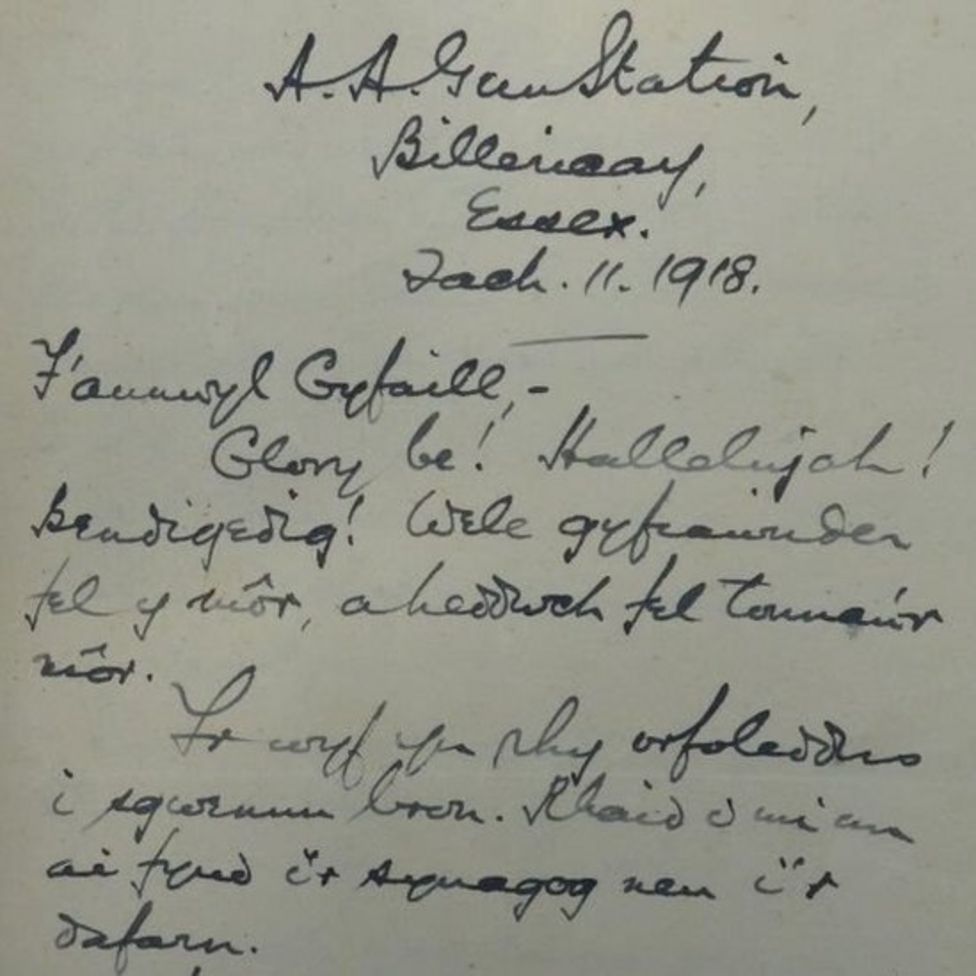 A.A. Gun Station,
Billericay,
Essex.
Tach. 11. 1918.
F'annwyl Gyfaill,-
Glory be! Hallelujah!
Bendigedig! Wele gyfiawnder
fel y môr, a heddwch fel tonnau'r
môr.
Yr wyf yn rhy orfoleddus
i sgwennu bron. Rhaid i mi un
ai fynd i'r synagog neu i'r
dafarn.